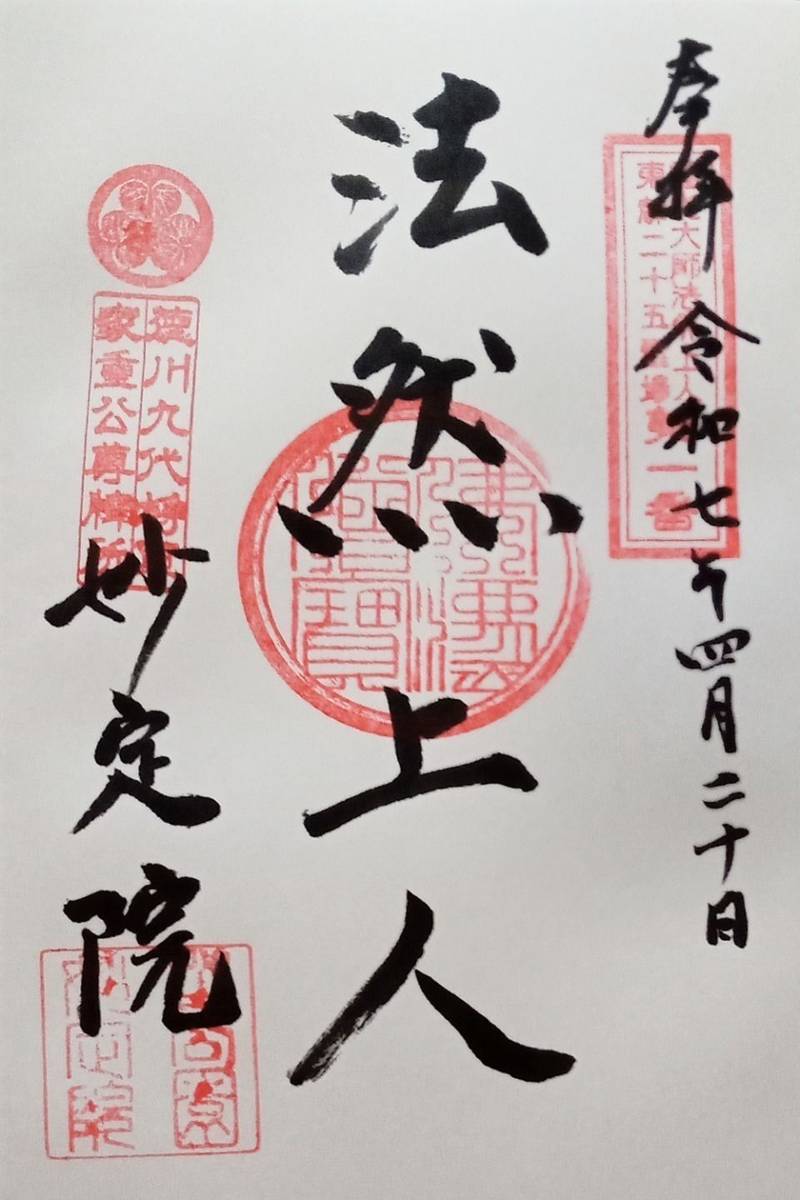 奉拝 令和七年四月二十日
大師法然上人
東都二十五霊場第一番
法然上人
佛法僧寶
徳川九代将
家重公尊牌
妙定院